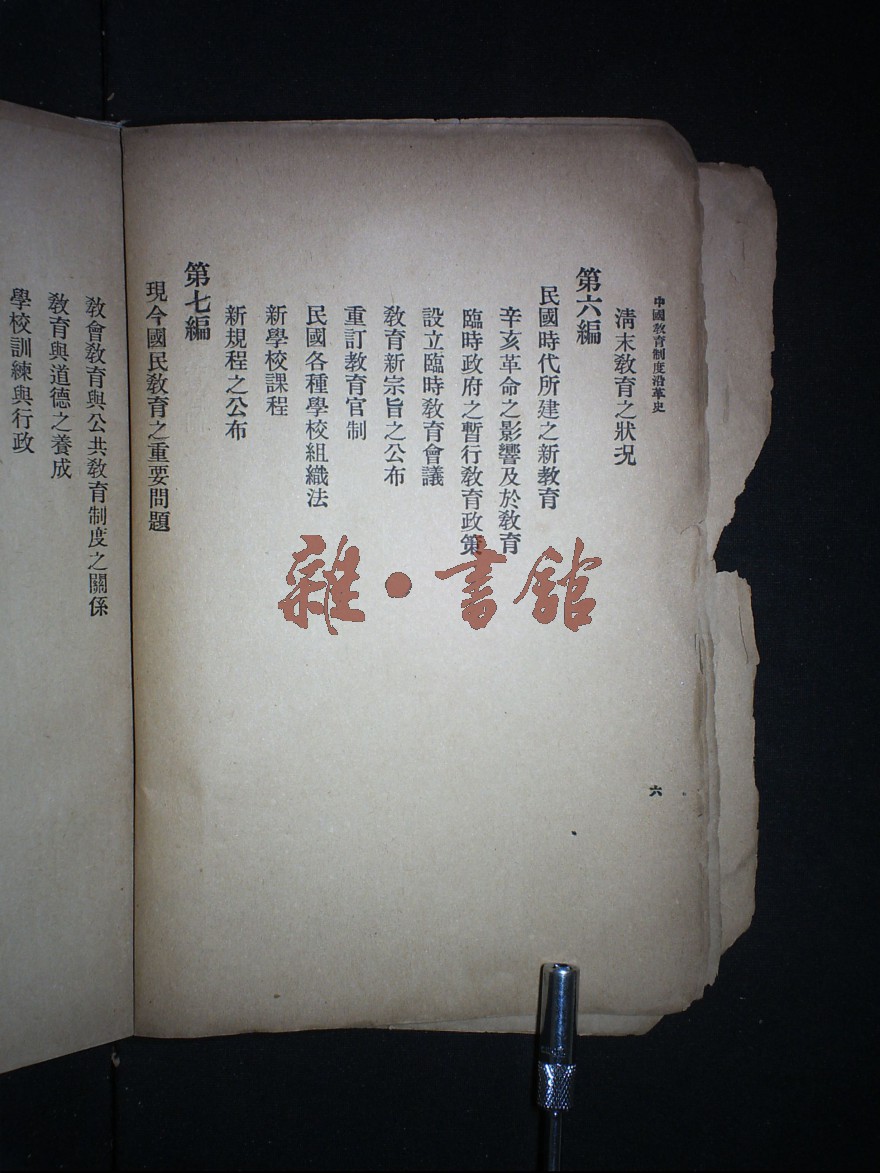 中國教育制度沿革史
淸末敎育之狀况
第六編
民國時代所建之新敎育
辛亥革命之影響及於敎育
臨時政府之暫行敎育政策
設立臨時敎育會議
敎育新宗旨之公布
重訂敎育官制
民國各種學校組織法
新學校課程
新規程之公布
第七編
現今國民敎育之重要問題
敎會敎育與公共敎育制度之關係
敎育與道德之養成
學校訓練與行政
六
雜·書館